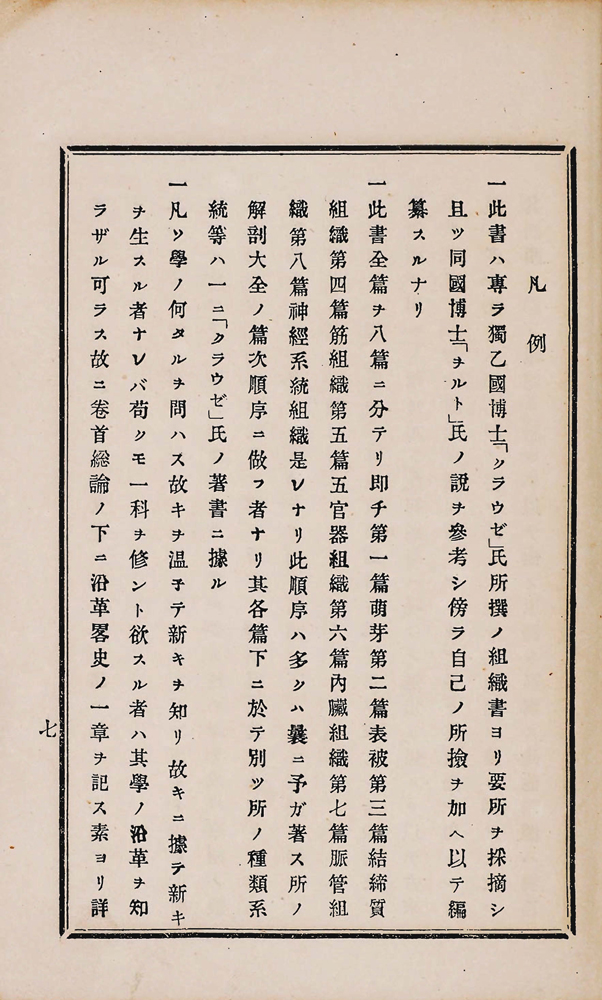 凡例
一此書ハ専ラ獨乙國博士「クラウゼ」氏所撰ノ組織書ヨリ要所ヲ採摘シ
且ツ同國博士「ヲルト」氏ノ説ヲ參考シ傍ラ自己ノ所撿ヲ加ヘ以テ編
纂スルナリ
一此書全篇ヲ八篇ニ分テリ即チ第一篇萌芽第二篇表被第三篇結締質
組織第四篇筋組織第五篇五官器組織第六篇內臟組織第七篇脈管組
織第八篇神經系統組織是レナリ此順序ハ多クハ曩ニ予ガ著ス所ノ
解剖大全ノ篇次順序ニ做フ者ナリ其各篇下ニ於テ別ツ所ノ種類系
統等ハ一ニ「クラウゼ」氏ノ著書ニ據ル
一凡ソ學ノ何タルヲ問ハス故キヲ温子テ新キヲ知リ故キニ據テ新キ
ヲ生スル者ナレバ苟クモ一科ヲ修ント欲スル者ハ其學ノ沿革ヲ知
ラザル可ラス故ニ卷首総論ノ下ニ沿革畧史ノ一章ヲ記ス素ヨリ詳
七